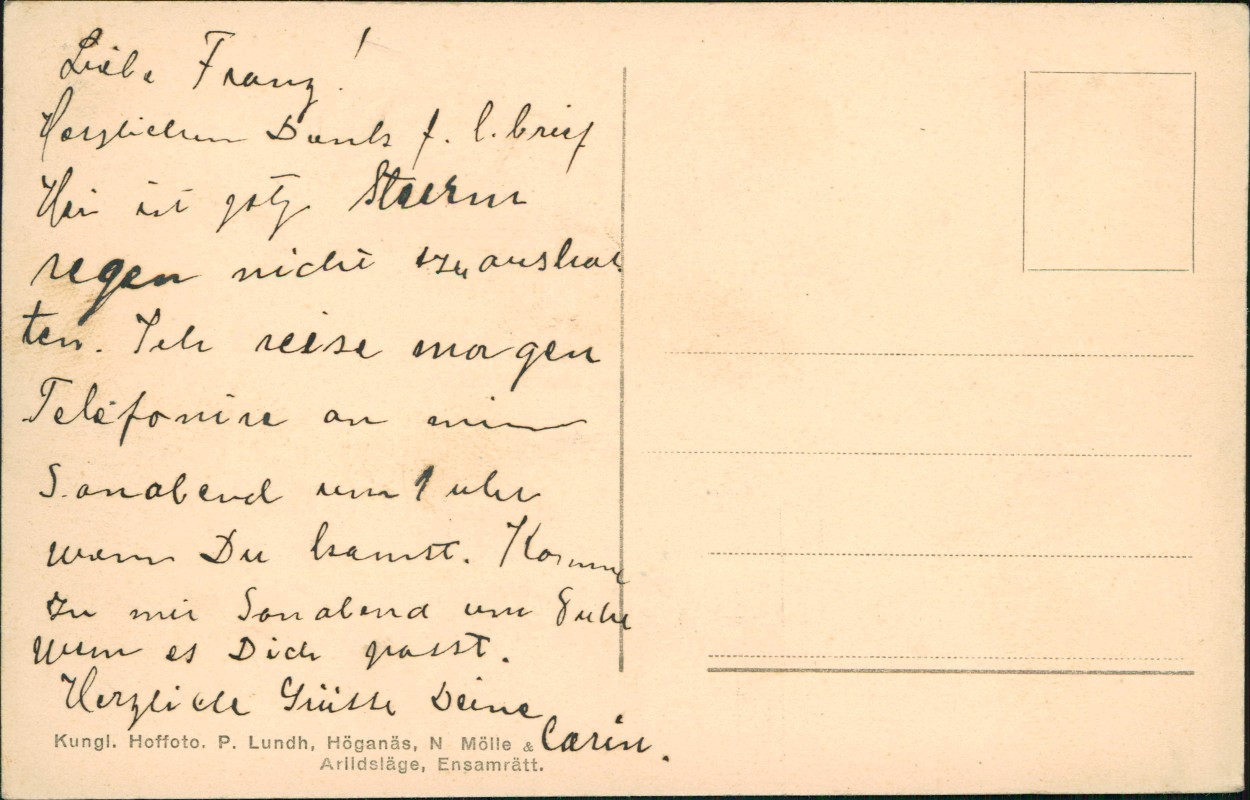 Liebe Franz!
Herzlichen Dank f. l. brief
Hir ist jetz Sturm
regen nicht zu aushal
ten. Ich reise morgen
Telefonire an mir
Sonabend um 1 uhr
wenn Du kannst. Komme
zu mir Sonabend um 8 uhr
wenn es Dich passt.
Herzliche Grüsse Deine
Carin.
Kungl. Hoffoto. P. Lundh, Höganäs, N Mölle &
Arildsläge, Ensamrätt.